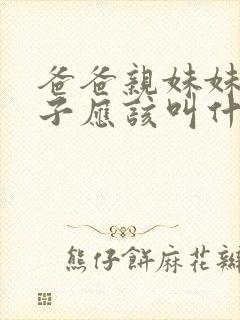 爸爸親妹妹
子應該叫什
熊仔餅麻花辮